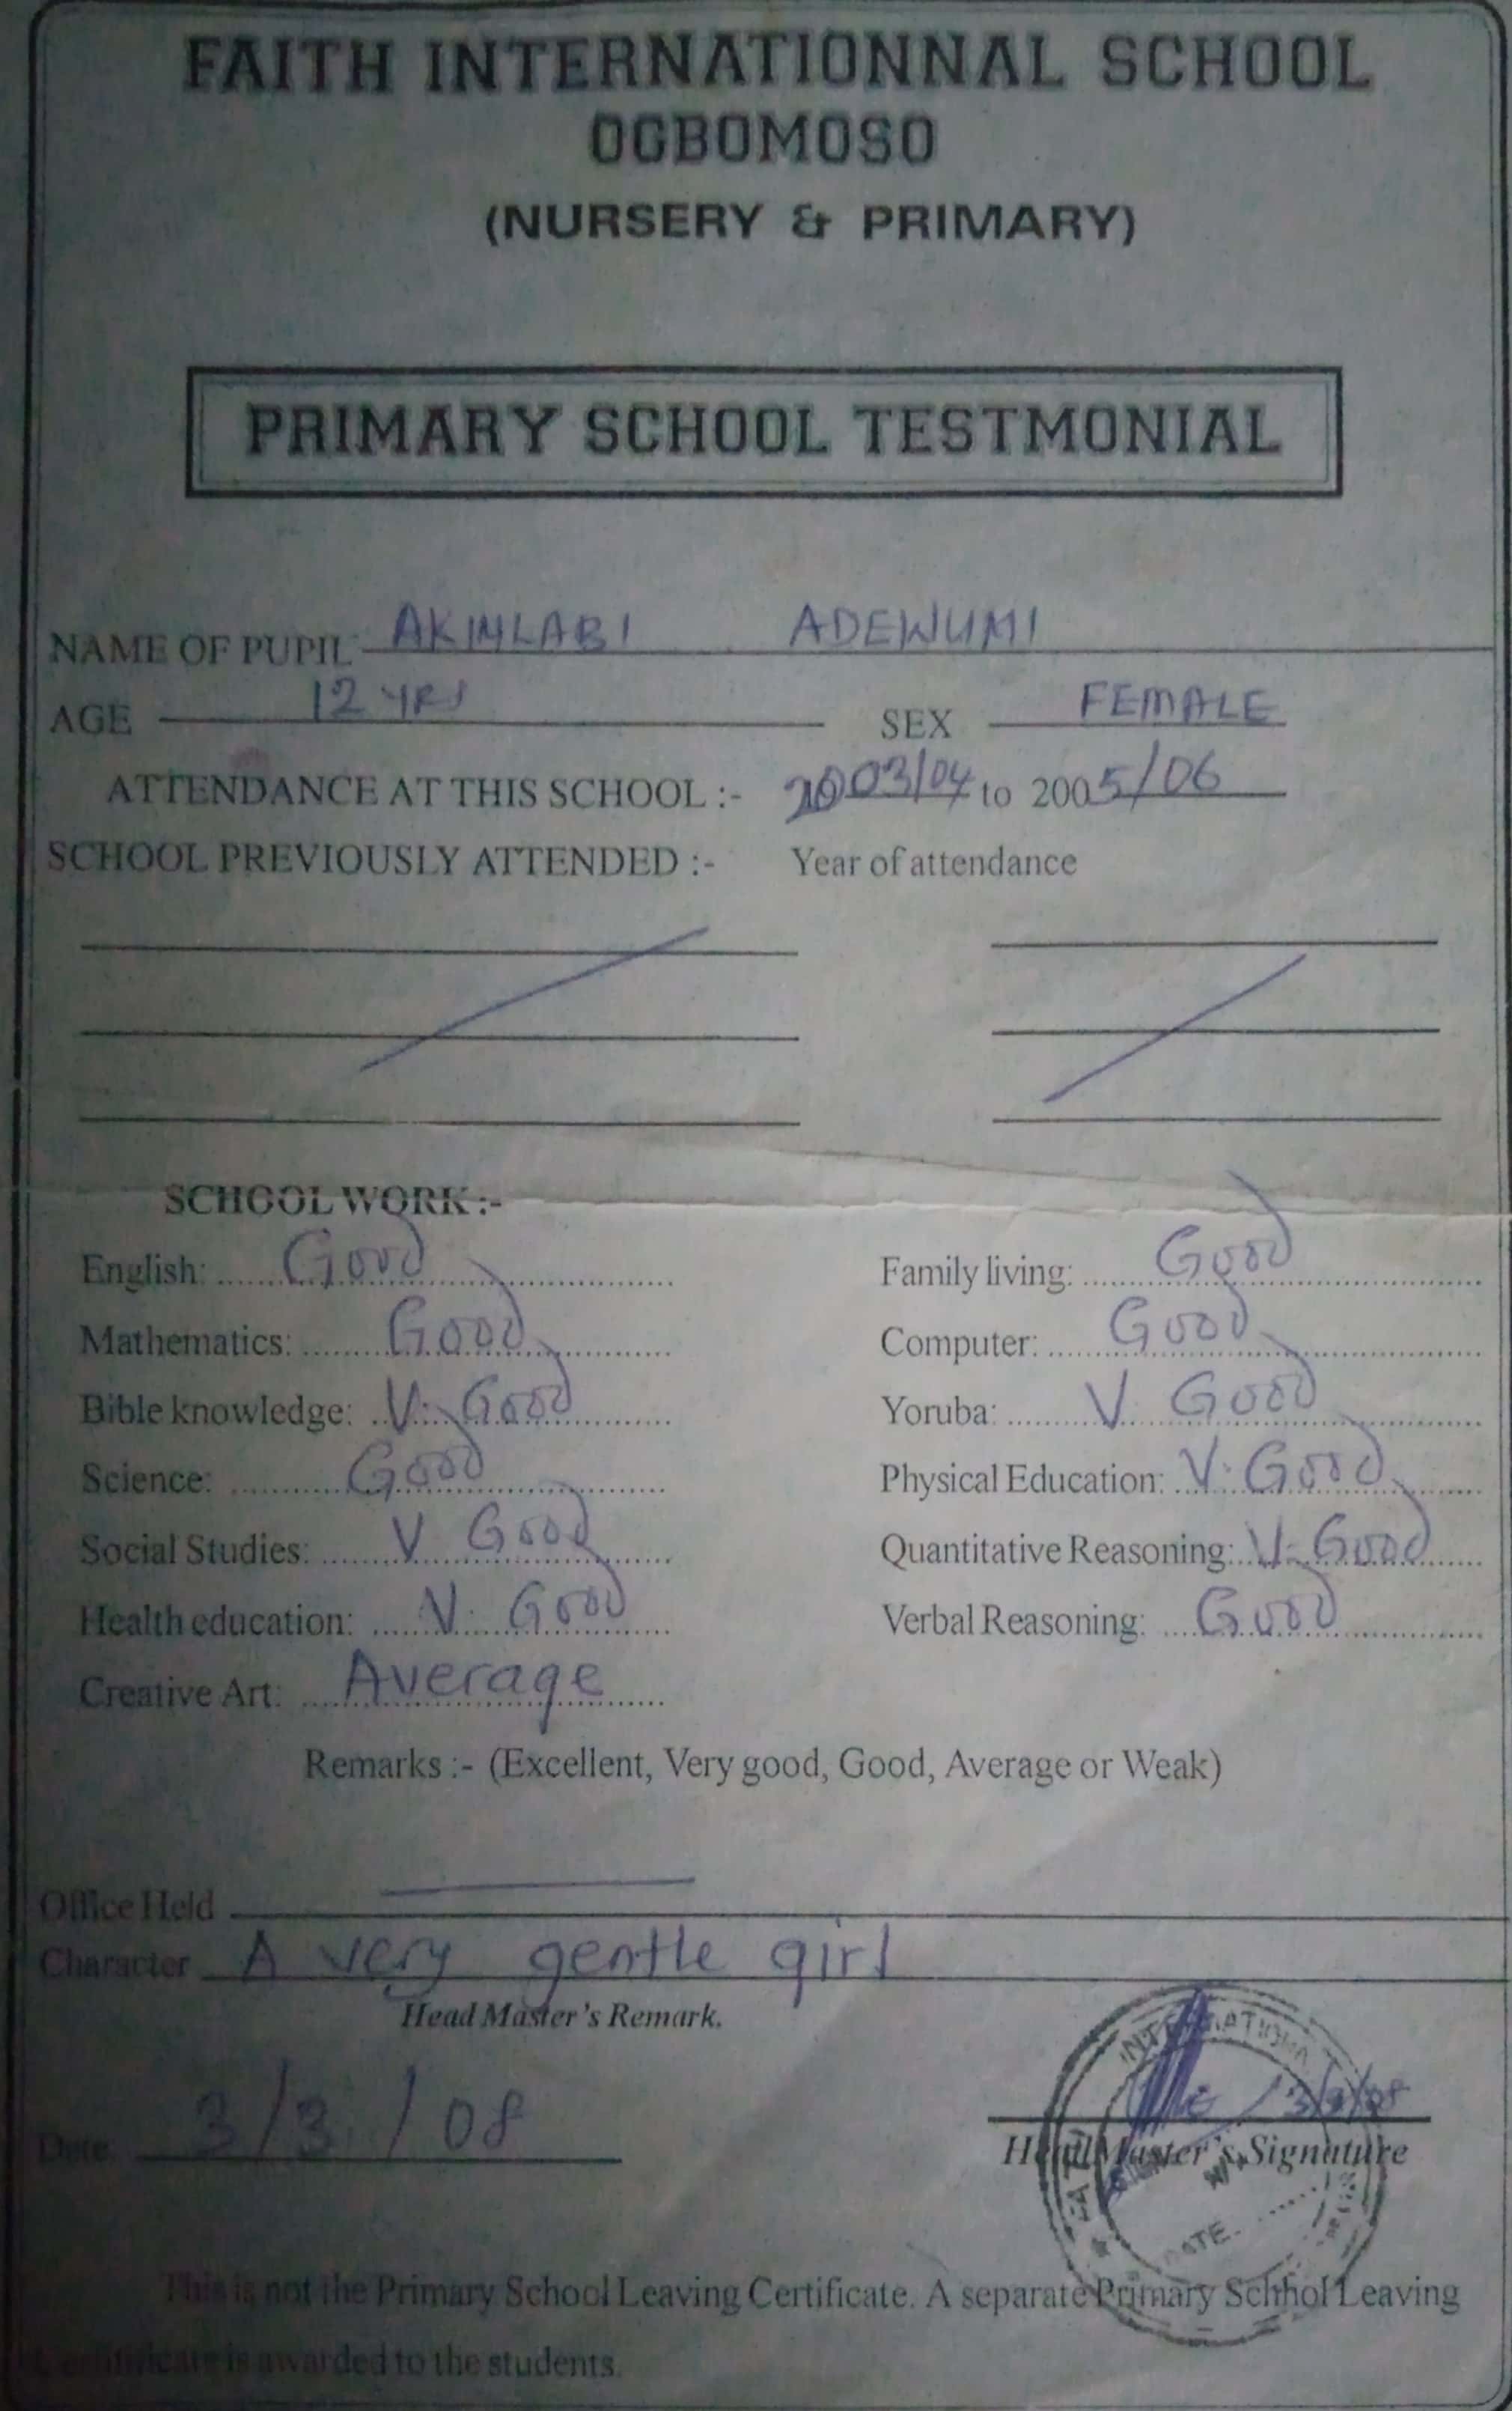 FAITH INTERNATIONNAL SCHOOL
OGBOMOSO
(NURSERY & PRIMARY)
PRIMARY SCHOOL TESTMONIAL
NAME OF PUPIL AKINLABI ADEWUMI
AGE 12 YRS SEX FEMALE
ATTENDANCE AT THIS SCHOOL :- 2003/04 to 2005/06
SCHOOL PREVIOUSLY ATTENDED :- Year of attendance
SCHOOL WORK :-
English: Good Family living: Good
Mathematics: Good Computer: Good
Bible knowledge: V. Good Yoruba: V. Good
Science: Good Physical Education: V. Good
Social Studies: V. Good Quantitative Reasoning: V. Good
Health education: V. Good Verbal Reasoning: Good
Creative Art: Average
Remarks :- (Excellent, Very good, Good, Average or Weak)
Office Held
Character A very gentle girl
Head Master's Remark.
Date 3/3/08 3/3/08
Head Master's Signature
INTERNATIONA
FAITH
DATE
This is not the Primary School Leaving Certificate. A separate Primary Schhol Leaving
Certificate is awarded to the students.